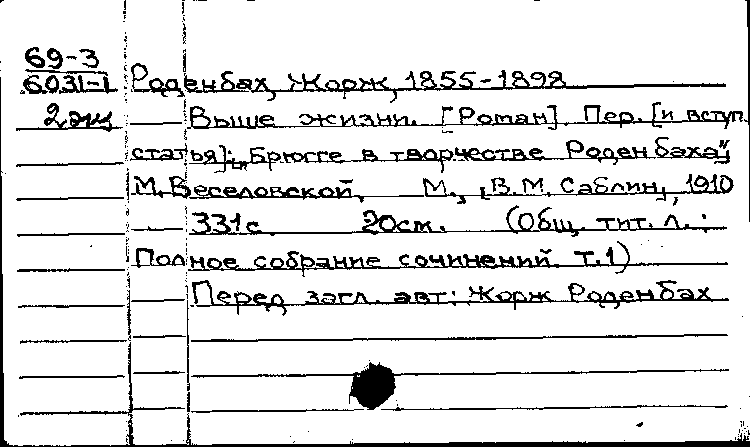 69-3
6031-1 Роденбах, Жорж, 1855-1898
2 экз Выше жизни. [Роман]. Пер. [и вступ.
статья]: „Брюгге в творчестве Роденбаха",
М. Веселовской, М., [В.М. Саблин], 1910
331с. 20см. (Общ. тит. л.:
Полное собрание сочинений. Т.1)
Перед загл. авт: Жорж Роденбах